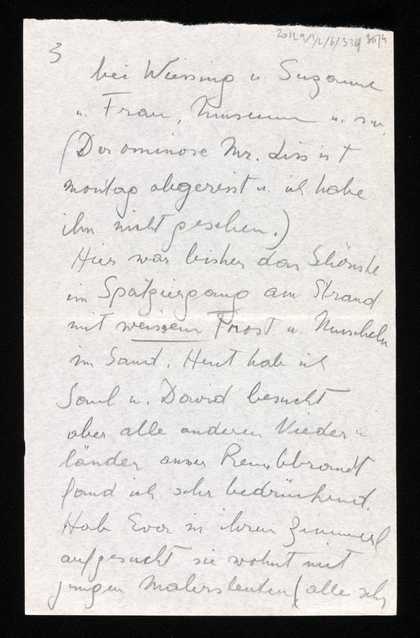 3
bei Wiessing u. Suzanne
u. Frau, Museum u. s.w.
(Der ominose Mr. Liss ist
montag abgereist u. ich habe
ihn nicht gesehen.)
Hier war bisher das Schönste
ein Spatziergang am Strand
mit weissem Frost u. Muscheln
im Sand. Heut hab ich
Saul u. David besucht
aber alle anderen Nieder-
länder ausser Rembbrandt
fand ich sehr bedrückend.
Hab Eva in ihrem Zimmerl
aufgesucht sie wohnt mit
jungen Malersleuten (alle sehr